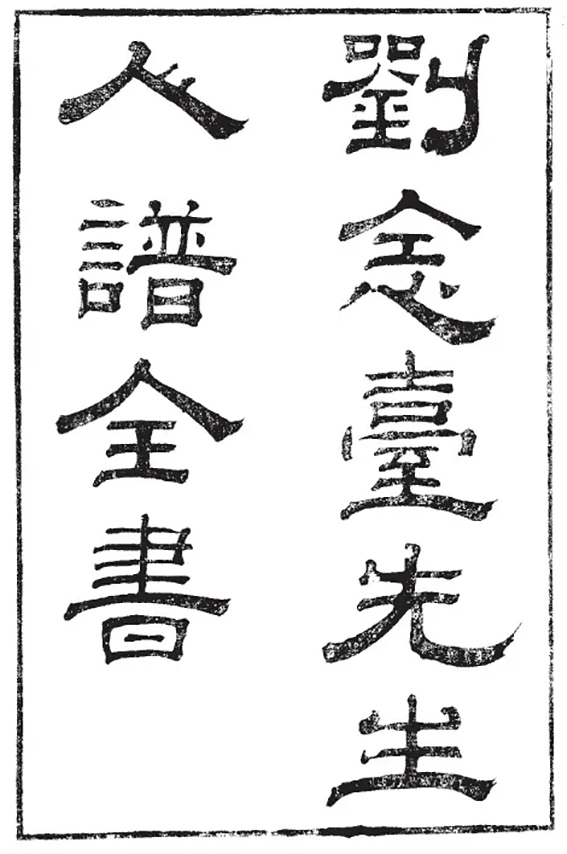 劉念臺先生
人譜全書